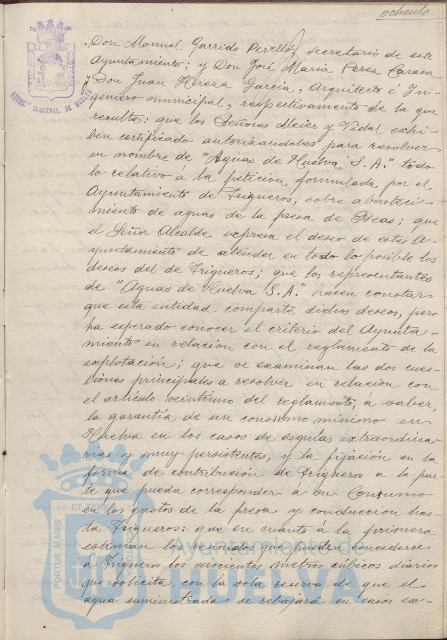 ochenta
Don Manuel Garrido Perelló, secretario de este
Ayuntamiento; y Don José María Perez Carasa
Don Juan Hereza García, Arquitecto é In-
geniero municipal, respectivamente de la que
resulta: que los Señores Meier y Vidal exhi-
ben certificado autorizandoles para resolver
en nombre de "Aguas de Huelva S.A." todo
lo relativo á la petición formulada por el
Ayuntamiento de Trigueros, sobre abasteci-
miento de aguas de la presa de Beas; que
el Señor Alcalde expresa el deseo de este A-
yuntamiento de atender en todo lo posible los
deseos del de Trigueros; que los representantes
de "Aguas de Huelva S.A." hacen constar
que esta entidad comparte dichos deseos, pero
ha esperado conocer el criterio del Ayunta-
miento en relación con el reglamento de la
explotación; que se examinan las dos cues-
tiones principales a resolver en relación con
el artículo veintiuno del reglamento, á saber
la garantía de un consumo mínimo en
Huelva en los casos de sequías extraordina-
rias y muy persistentes, y la fijación en la
forma de contribución de Trigueros a la par-
te que pueda corresponder a su Consumo
en los gastos de la presa y conducción has-
ta Trigueros: que en cuanto á la primera
estiman los reunidos que puede concederse
a Trigueros los doscientos metros cúbicos diarios
que solicita, con la sola reserva de que el
agua suministrada se rebajará en casos ex-
PORTUS MARIS
Ayuntamiento de
HUELVA